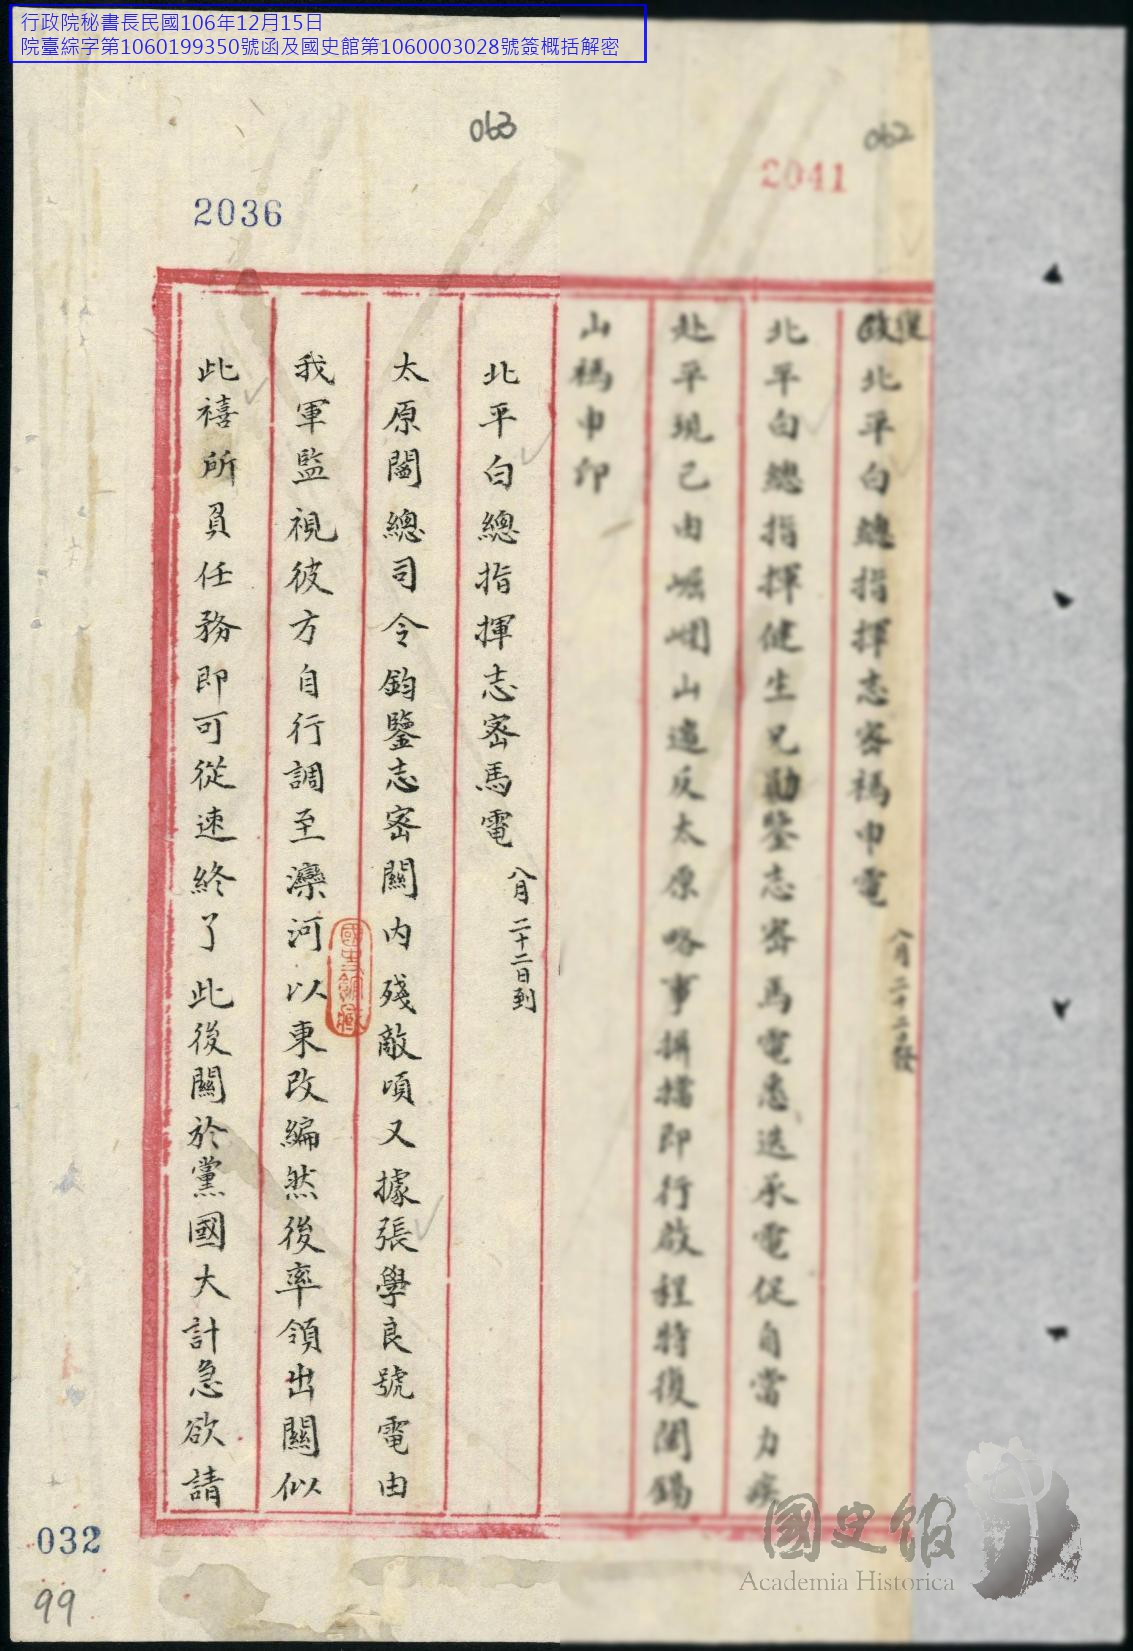 行政院秘書長民國106年12月15日
院臺綜字第1060199350號函及國史館第1060003028號簽概括解密
062
2041
063
2036
復北平白總指揮志密禡申電 八月二十二日發
北平白總指揮健生兄勛鑒志密馬電悉迭承電促自當力疾
赴平現已由崛𡶴山遄反太原略事摒擋即行啟程特復閻錫
山禡申印
北平白總指揮志密馬電 八月二十二日到
太原閻總司令鈞鑒志密關內殘敵頃又據張學良號電由
我軍監視彼方自行調至灤河以東改編然後率領出關似
此禧所負任務即可從速終了此後關於黨國大計急欲請
國史館藏
032
99
國史館
Academia Historica